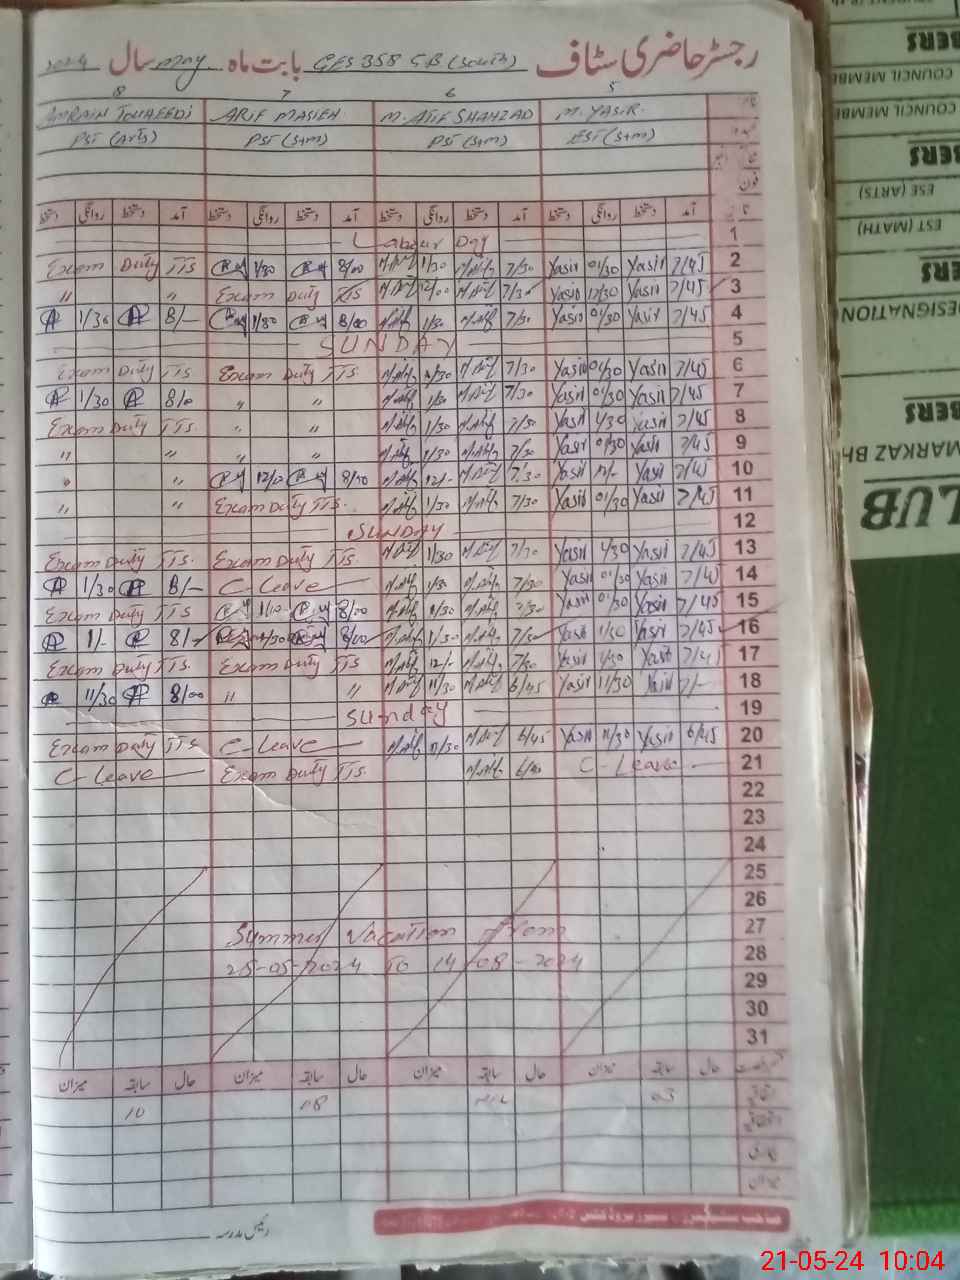 رجسٹر حاضری سٹاف بابت ماہ GES 358 GB (South) May سال 2024
8 7 6 5
AMRAIN TOUHEEDI ARIF MASIEH M. ATIF SHAHZAD M. YASIR
PST (Arts) PST (S+m) PST (S+m) EST (S+m)
فون
دستخط روانگی دستخط آمد دستخط روانگی دستخط آمد دستخط روانگی دستخط آمد دستخط روانگی دستخط آمد
Labour Day 1
Exam Duty TTS 1/30 8/00 M.Atif 1/30 M.Atif 7/30 Yasir 01/30 Yasir 7/45 2
" " Exam Duty TTS M.Atif 12/00 M.Atif 7/30 Yasir 12/30 Yasir 7/45 3
1/30 8/- 1/30 8/00 M.Atif 1/30 M.Atif 7/30 Yasir 01/30 Yasir 7/45 4
SUNDAY 5
Exam Duty TTS Exam Duty TTS M.Atif 1/30 M.Atif 7/30 Yasir 01/30 Yasir 7/45 6
1/30 8/0 " " M.Atif 1/30 M.Atif 7/30 Yasir 01/30 Yasir 7/45 7
Exam Duty TTS " " M.Atif 1/30 M.Atif 7/30 Yasir 1/30 Yasir 7/45 8
" " " " M.Atif 1/30 M.Atif 7/30 Yasir 01/30 Yasir 7/45 9
" " 12/0 8/00 M.Atif 12/- M.Atif 7/30 Yasir 12/- Yasir 7/45 10
" " Exam Duty TTS. M.Atif 1/30 M.Atif 7/30 Yasir 01/30 Yasir 7/45 11
SUNDAY 12
Exam Duty TTS. Exam Duty TTS. M.Atif 1/30 M.Atif 7/30 Yasir 1/30 Yasir 7/45 13
1/30 8/- C-Leave M.Atif 1/30 M.Atif 7/30 Yasir 01/30 Yasir 7/45 14
Exam Duty TTS 1/10 8/00 M.Atif 1/30 M.Atif 7/30 Yasir 01/30 Yasir 7/45 15
1/- 8/- 1/30 8/00 M.Atif 1/30 M.Atif 7/30 Yasir 1/30 Yasir 7/45 16
Exam Duty TTS. Exam Duty TTS M.Atif 12/- M.Atif 7/30 Yasir 1/30 Yasir 7/45 17
11/30 8/00 " " M.Atif 11/30 M.Atif 6/45 Yasir 11/30 Yasir 7/- 18
Sunday 19
Exam Duty TTS C-Leave M.Atif 11/30 M.Atif 6/45 Yasir 11/30 Yasir 6/45 20
C-Leave Exam Duty TTS. M.Atif C-Leave 21
22
23
24
25
26
Summer Vacation from 27
25-05-2024 To 14-08-2024 28
29
30
31
میزان سابقہ حال میزان سابقہ حال میزان سابقہ حال میزان سابقہ حال
10 08 NIL 03
میزان
رئیس مدرسہ
BERS
COUNCIL MEMBE
COUNCIL MEMBE
BERS
ESE (ARTS)
EST (MATH)
BERS
DESIGNATION
BERS
MARKAZ BH
LUB
21-05-24 10:04